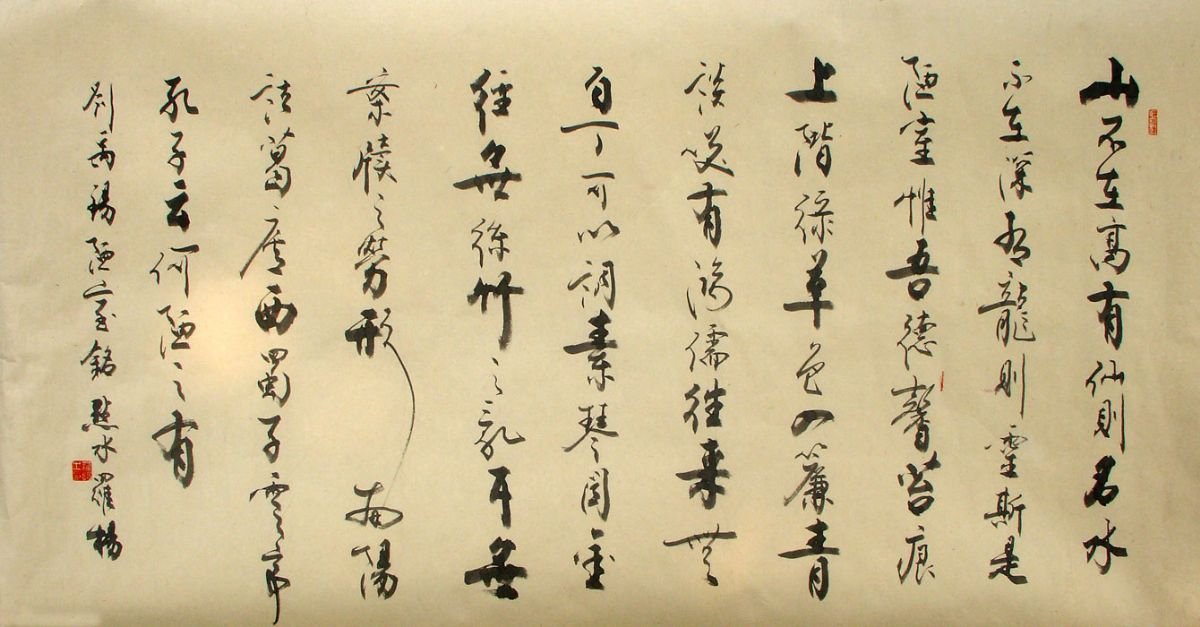 山不在高有仙則名水
不在深有龍則靈斯是
陋室惟吾德馨苔痕
上階綠草色入簾青
談笑有鴻儒往來無
白丁可以調素琴閱金
經無絲竹之亂耳無
案牘之勞形南陽
諸葛廬西蜀子雲亭
孔子云何陋之有
劉禹錫陋室銘點水羅楊